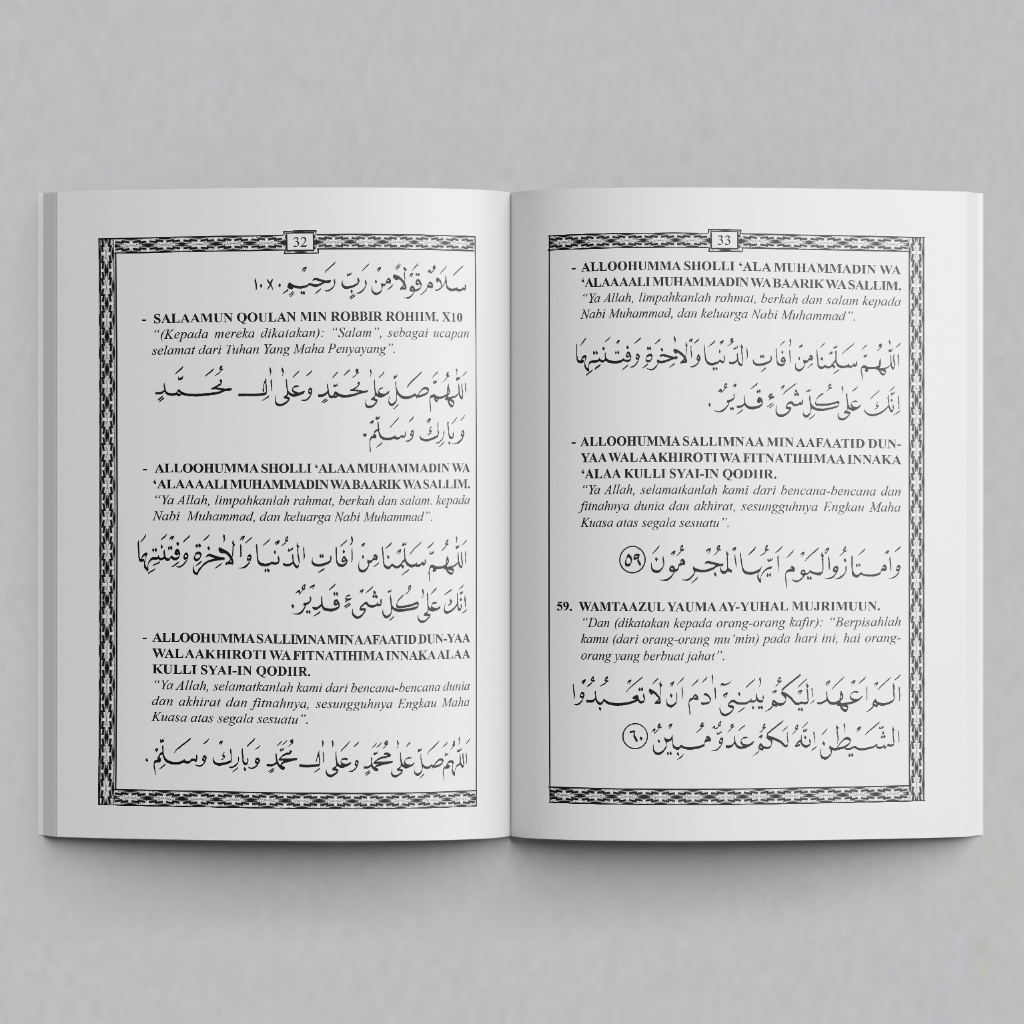 32
سَلَامٌ قَوْلًا مِنْ رَبٍّ رَحِيْمٍ ١٠X٠
- SALAAMUN QOULAN MIN ROBBIR ROHIIM. X10
“(Kepada mereka dikatakan): “Salam”, sebagai ucapan
selamat dari Tuhan Yang Maha Penyayang”.
اَللّٰهُمَّ صَلِّ عَلٰى مُحَمَّدٍ وَعَلٰى اٰلِ مُحَمَّدٍ
وَبَارِكْ وَسَلِّمْ.
- ALLOOHUMMA SHOLLI ‘ALAA MUHAMMADIN WA
‘ALAAAALI MUHAMMADIN WA BAARIK WA SALLIM.
“Ya Allah, limpahkanlah rahmat, berkah dan salam. kepada
Nabi Muhammad, dan keluarga Nabi Muhammad”.
اَللّٰهُمَّ سَلِّمْنَا مِنْ اٰفَاتِ الدُّنْيَا وَاْلاٰخِرَةِ وَفِتْنَتِهِمَا
اِنَّكَ عَلٰى كُلِّ شَىْءٍ قَدِيْرٌ.
- ALLOOHUMMA SALLIMNA MIN AAFAATID DUN-YAA
WAL AAKHIROTI WA FITNATIHIMA INNAKA ALAA
KULLI SYAI-IN QODIIR.
“Ya Allah, selamatkanlah kami dari bencana-bencana dunia
dan akhirat dan fitnahnya, sesungguhnya Engkau Maha
Kuasa atas segala sesuatu”.
اَللّٰهُمَّ صَلِّ عَلٰى مُحَمَّدٍ وَعَلٰى اٰلِ مُحَمَّدٍ وَبَارِكْ وَسَلِّمْ.
33
- ALLOOHUMMA SHOLLI ‘ALA MUHAMMADIN WA
‘ALAAAALI MUHAMMADIN WA BAARIK WA SALLIM.
“Ya Allah, limpahkanlah rahmat, berkah dan salam kepada
Nabi Muhammad, dan keluarga Nabi Muhammad”.
اَللّٰهُمَّ سَلِّمْنَا مِنْ اٰفَاتِ الدُّنْيَا وَاْلاٰخِرَةِ وَفِتْنَتِهِمَا
اِنَّكَ عَلٰى كُلِّ شَىْءٍ قَدِيْرٌ.
- ALLOOHUMMA SALLIMNAA MIN AAFAATID DUN-
YAA WAL AAKHIROTI WA FITNATIHIMAA INNAKA
‘ALAA KULLI SYAI-IN QODIIR.
“Ya Allah, selamatkan kami dari bencana-bencana dan
fitnahnya dunia dan akhirat, sesungguhnya Engkau Maha
Kuasa atas segala sesuatu”.
وَامْتَازُوا الْيَوْمَ اَيُّهَا الْمُجْرِمُوْنَ ٥٩
59. WAMTAAZUL YAUMA AY-YUHAL MUJRIMUUN.
“Dan (dikatakan kepada orang-orang kafir): “Berpisahlah
kamu (dari orang-orang mu’min) pada hari ini, hai orang-
orang yang berbuat jahat”.
اَلَمْ اَعْهَدْ اِلَيْكُمْ يٰبَنِيْٓ اٰدَمَ اَنْ لَا تَعْبُدُوا
الشَّيْطٰنَ اِنَّهٗ لَكُمْ عَدُوٌّ مُّبِيْنٌ ٦٠